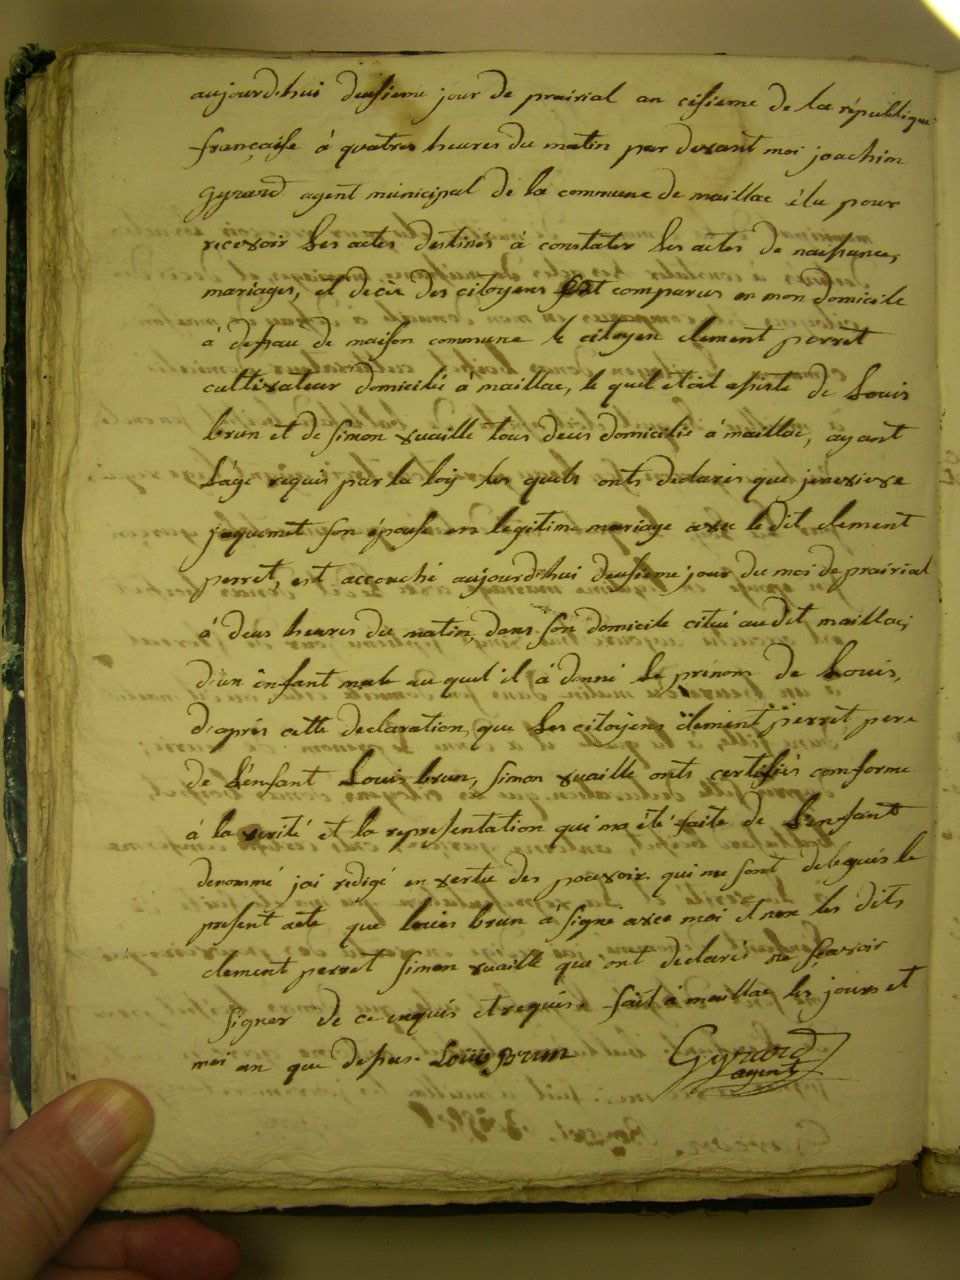 aujourd'hui deusieme jour de prairial an cisieme de la république
française à quatres heures du matin par devant moi joachim
Gyrard agent municipal de la commune de maillac élu pour
recevoir Les actes destinés à constater Les actes de naissances,
mariages, et decès des citoyens est comparus en mon domicile
à defsau de maison commune le citoyen clement perret
cultivateur domicilié à maillac, le quel était assisté de Louis
brun et de simon vuaille tous deus domicilié à maillac, ayant
L'age requis par la loy les quels onts declarés que jenevieve
jaquemet son épouse en legitime mariage avec le dit clement
perret, est accouché aujourd'hui deusieme jour du moi de prairial
à deus heures du matin, dans son domicile citué au dit maillac,
d'un énfant male au quel il à donné le prénom de Louis,
d'après cette declaration, que Les citoyens clement perret pere
de L'énfant Louis brun, simon vuaille onts certifiés comforme
à la verité et la representation qui ma été faite de L'enfant
denommé jai redigé en vertu des pouvoir qui me sont delegués le
present acte que louis brun à signé avec moi et non les dits
clement perret simon vuaille que ont declarés ne sçavoir
signer de ce enquis et requis. fait à maillac les jours et
moi an que dessus. Loüis Brun Gyrard
agent